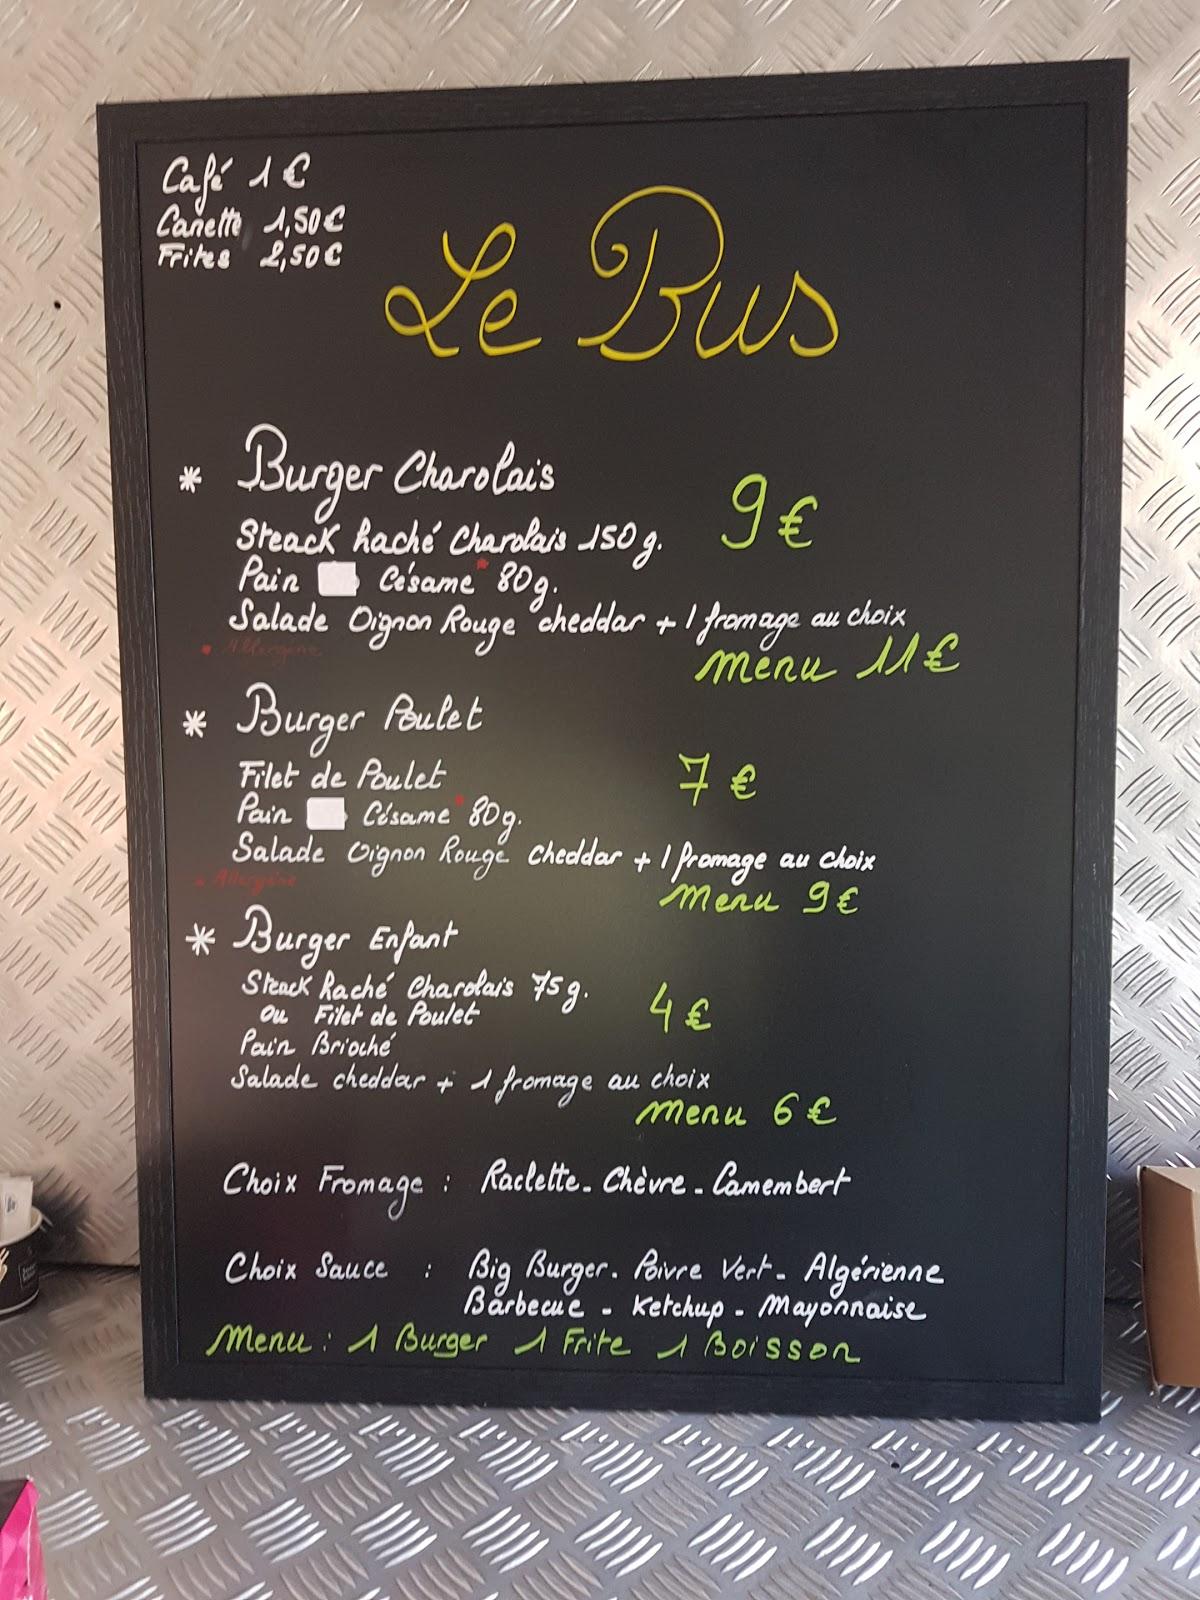 Café 1€
Canette 1,50€
Frites 2,50€
Le Bus
* Burger Charolais
9€
Steack haché Charolais 150g.
Pain Césame* 80g.
Salade Oignon Rouge cheddar + 1 fromage au choix
• Allergène
Menu 11€
* Burger Poulet
Filet de Poulet
7€
Pain Césame* 80g.
Salade Oignon Rouge cheddar + 1 fromage au choix
• Allergène
Menu 9€
* Burger Enfant
Steack haché Charolais 75g.
ou Filet de Poulet
4€
Pain Brioché
Salade cheddar + 1 fromage au choix
Menu 6€
Choix Fromage : Raclette - Chèvre - Camembert
Choix Sauce : Big Burger - Poivre Vert - Algérienne
Barbecue - Ketchup - Mayonnaise
Menu : 1 Burger 1 Frite 1 Boisson